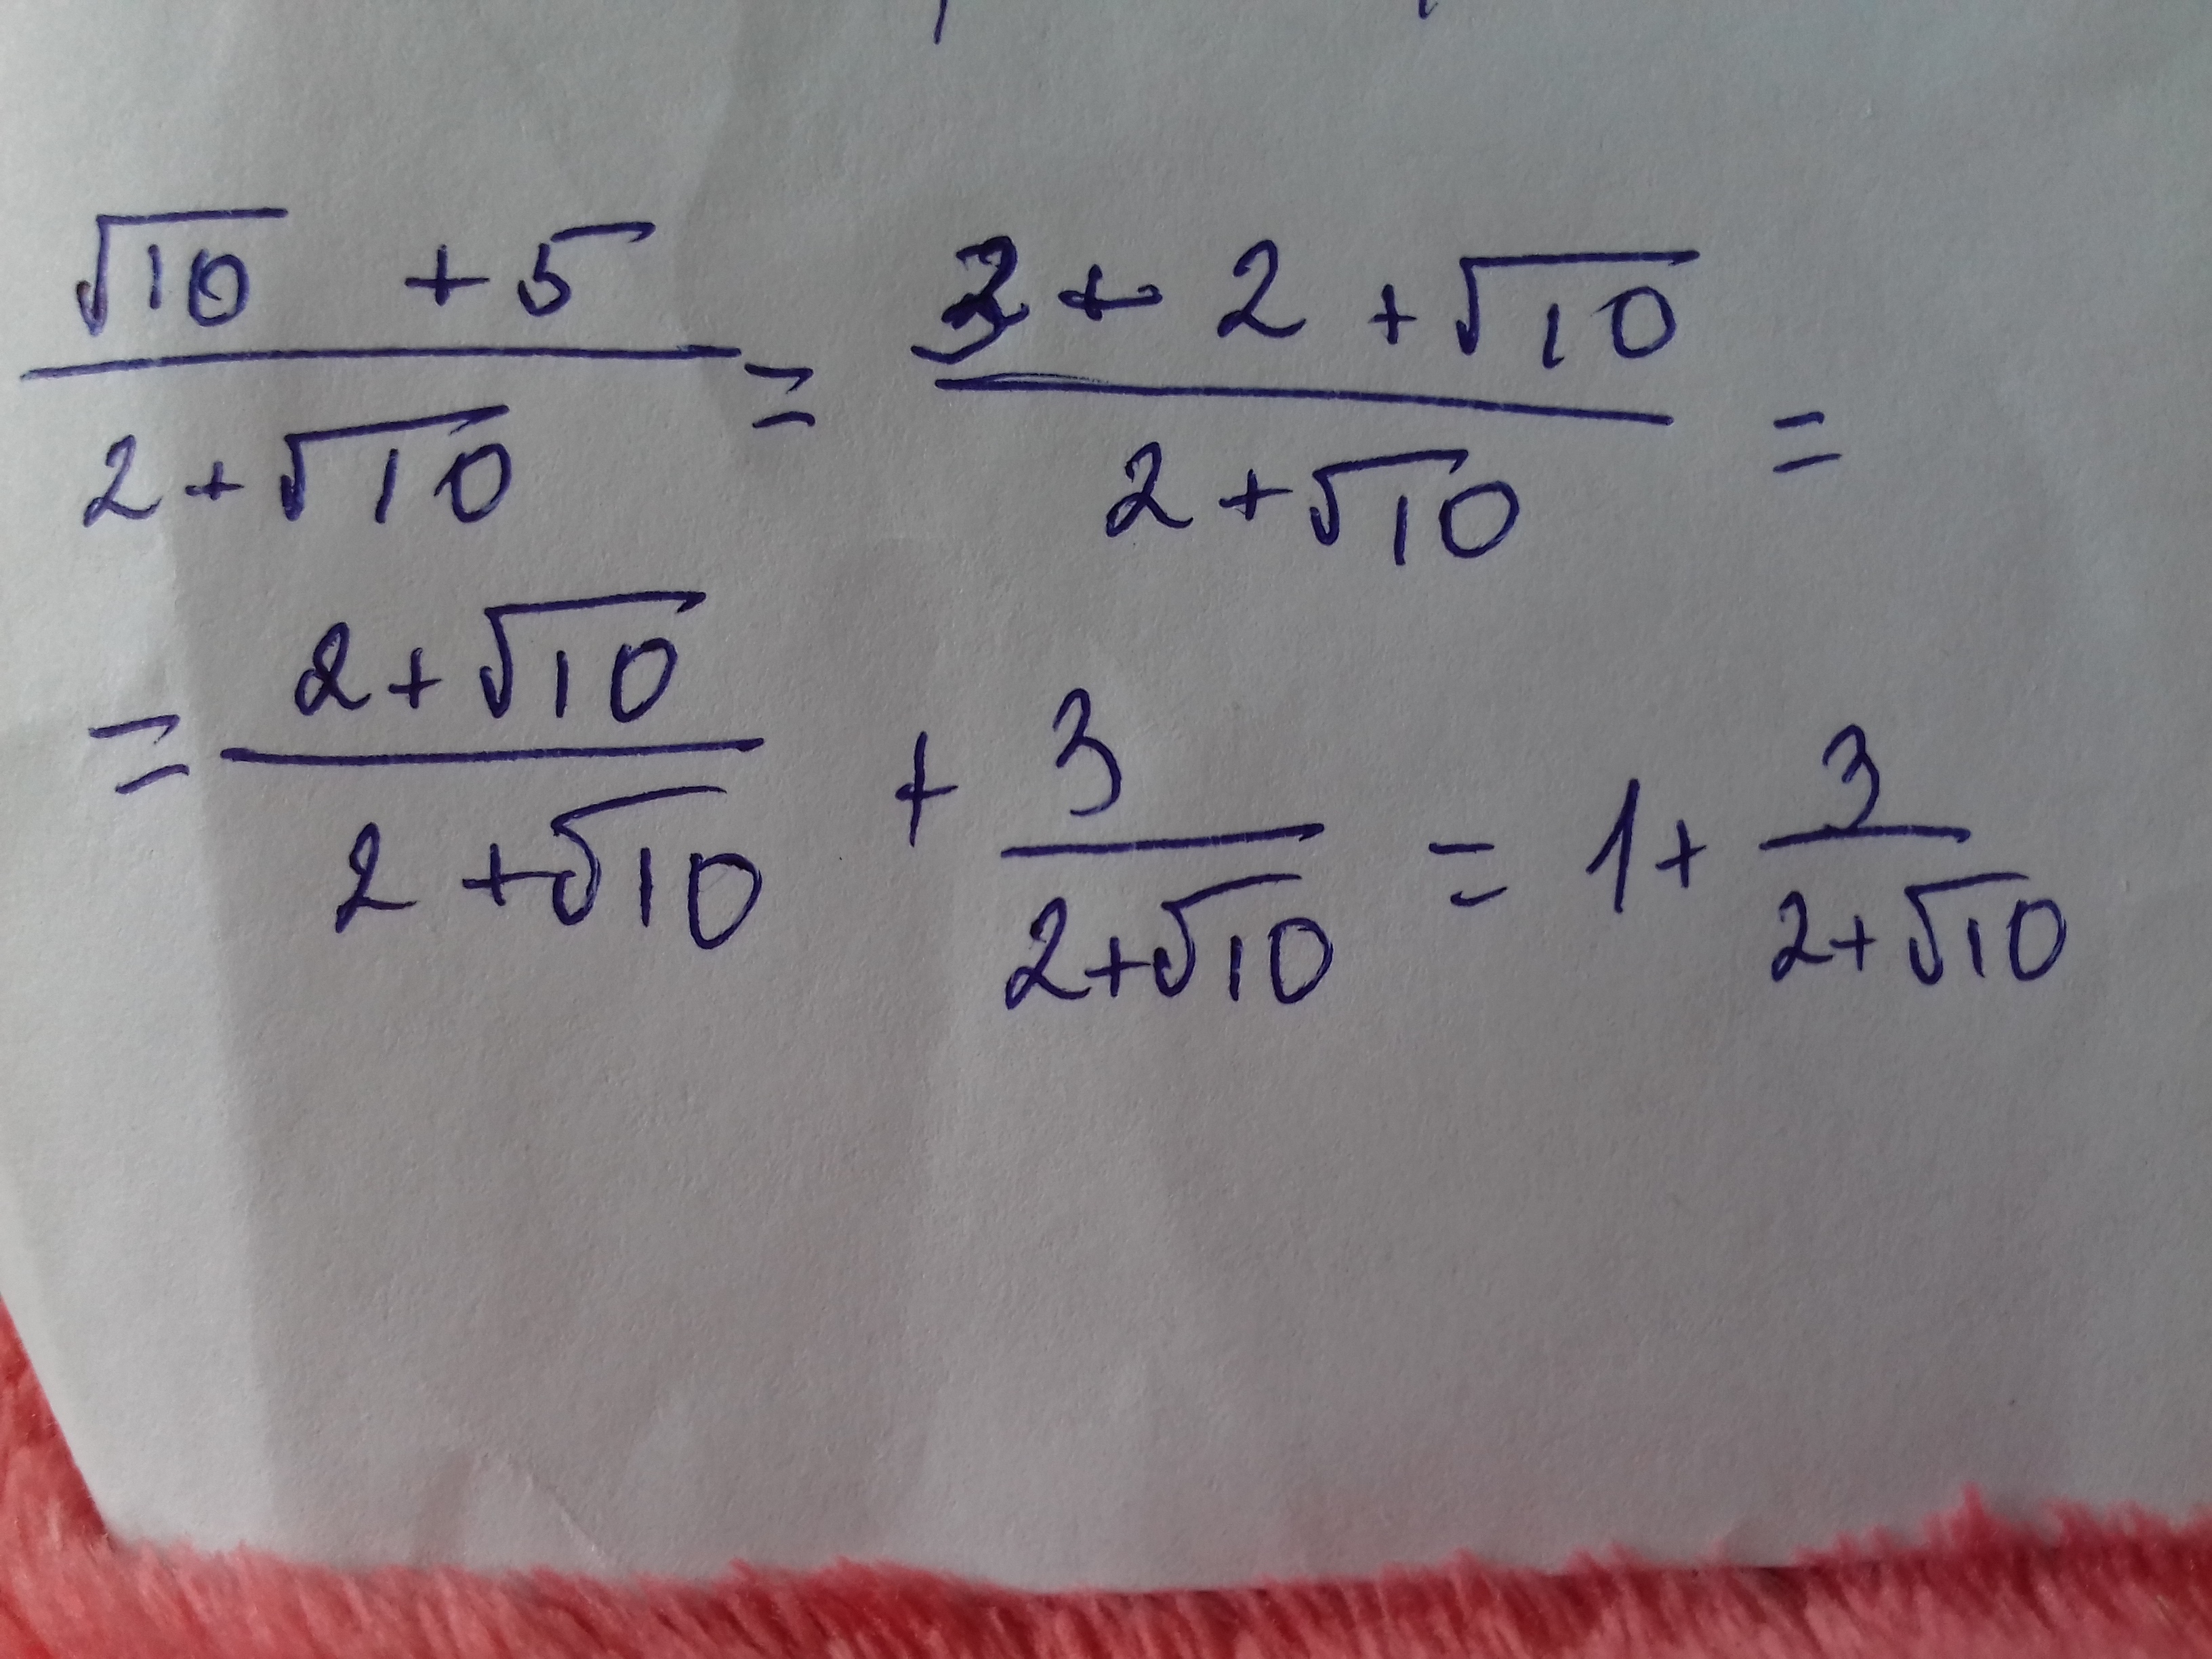 (√10 + 5)/(2 + √10) = (3 + 2 + √10)/(2 + √10) =
= (2 + √10)/(2 + √10) + 3/(2 + √10) = 1 + 3/(2 + √10)